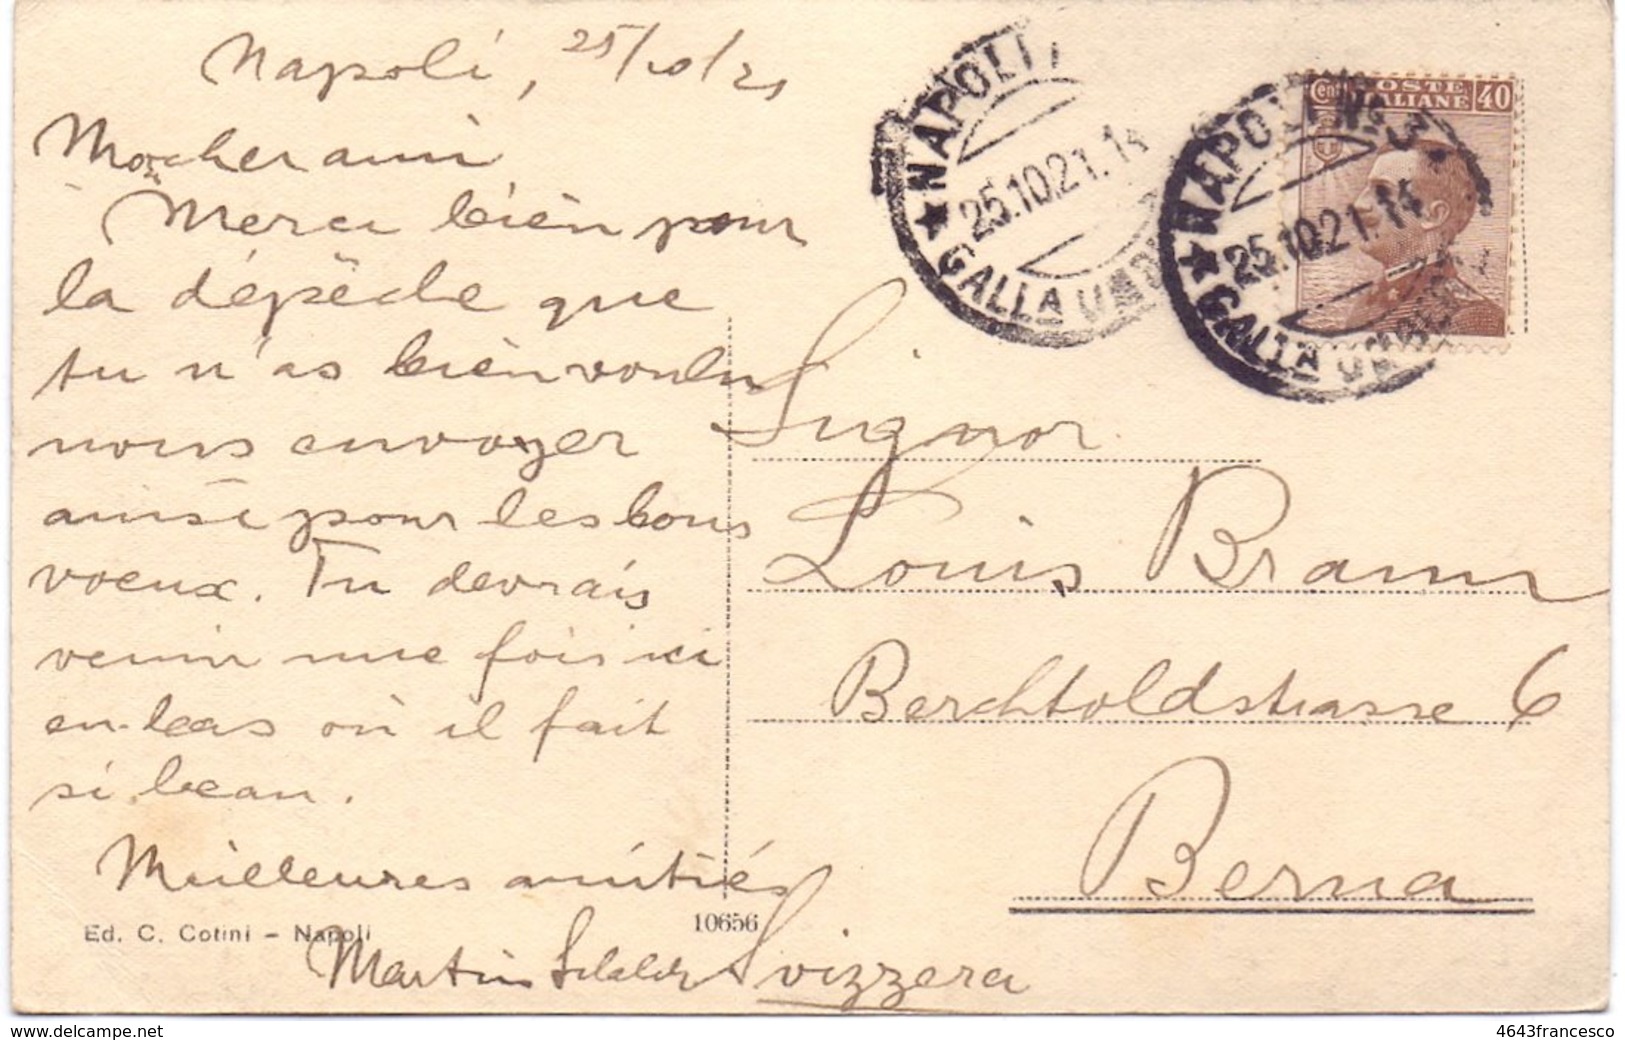 Napoli, 25/10/21
Mon cher ami
Merci bien pour
la dépêche que
tu n'as bien voulu
nous envoyer
ainsi pour les bons
voeux. Tu devrais
venir une fois ici
en-bas où il fait
si beau.
Meilleures amitiés
Martin
Ed. C. Cotini – Napoli
10656
NAPOLI
25.10.21.14
★ GALLA
NAPOLI N. 3
25.10.21.14
★ GALLA
Cent POSTE ITALIANE 40
Signor
Louis Braun
Berchtoldstrasse 6
Berna
Svizzera
www.delcampe.net
4643francesco